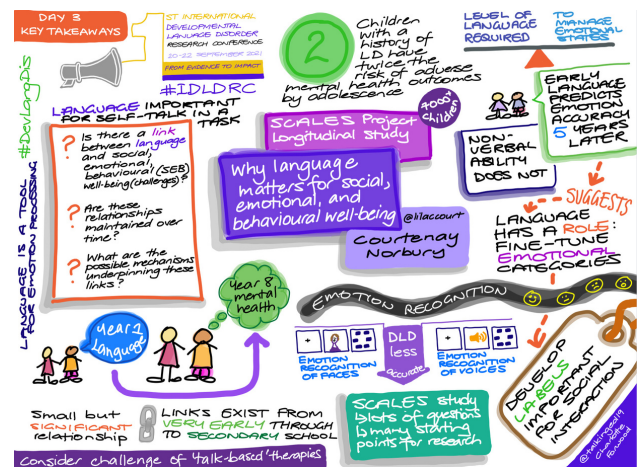 DAY 3
KEY TAKEAWAYS
1ST INTERNATIONAL
DEVELOPMENTAL
LANGUAGE DISORDER
RESEARCH CONFERENCE
20-22 SEPTEMBER 2021
FROM EVIDENCE TO IMPACT
#IDLDRC
#DevLangDis
LANGUAGE IS A TOOL
FOR EMOTION PROCESSING
LANGUAGE IMPORTANT
FOR SELF-TALK IN A
TASK
? Is there a link
between language
and social,
emotional,
behavioural (SEB)
well-being (challenges)?
? Are these
relationships
maintained over
time?
? What are the
possible mechanisms
underpinning these
links?
2
Children
with a
history of
LD have
twice the
risk of adverse
mental health outcomes
by adolescence
SCALES Project
Longitudinal study
7000+
children
Why language
matters for social,
emotional, and
behavioural well-being
@lilaccourt
Courtenay
Norbury
LEVEL OF
LANGUAGE
REQUIRED
TO
MANAGE
EMOTIONAL
STATES
EARLY
LANGUAGE
PREDICTS
EMOTION
ACCURACY
5 YEARS
LATER
NON-
VERBAL
ABILITY
DOES NOT
SUGGESTS
LANGUAGE
HAS A ROLE:
FINE-TUNE
EMOTIONAL
CATEGORIES
EMOTION RECOGNITION
EMOTION
RECOGNITION
OF FACES
DLD
less
accurate
EMOTION
RECOGNITION
OF VOICES
DEVELOP
LABELS
IMPORTANT
FOR SOCIAL
INTERACTION
Year 1
Language
Year 8
mental
health
Small but
SIGNIFICANT
relationship
LINKS EXIST FROM
VERY EARLY THROUGH
TO SECONDARY SCHOOL
SCALES study
↳ lots of questions
↳ many starting
points for research
consider challenge of 'talk-based' therapies
Charlotte
Forwood